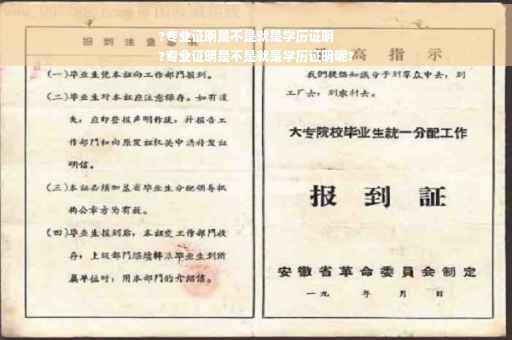 ?专业证明是不是就是学历证明
?专业证明是不是就是学历证明呢?
报到注意事项
(一)毕业生凭本证向工作部门报到。
(二)毕业生对本证应注意保存。如有遗
失,应即登报声明作废,并报告工
作部门和向原发证机关申请补发证
明信。
(三)本证必须加盖省毕业生分配领导机
构公章方为有效。
(四)毕业生报到后,本证交工作部门收
存;上级部门
毕业生到所
属单位时,用本部门的介绍信。
最高指示
我们提倡知识分子到群众中去,到
工厂去,到农村去。
大专院校毕业生統一分配工作
报到証
安徽省革命委員会制定
一九 年 月 日